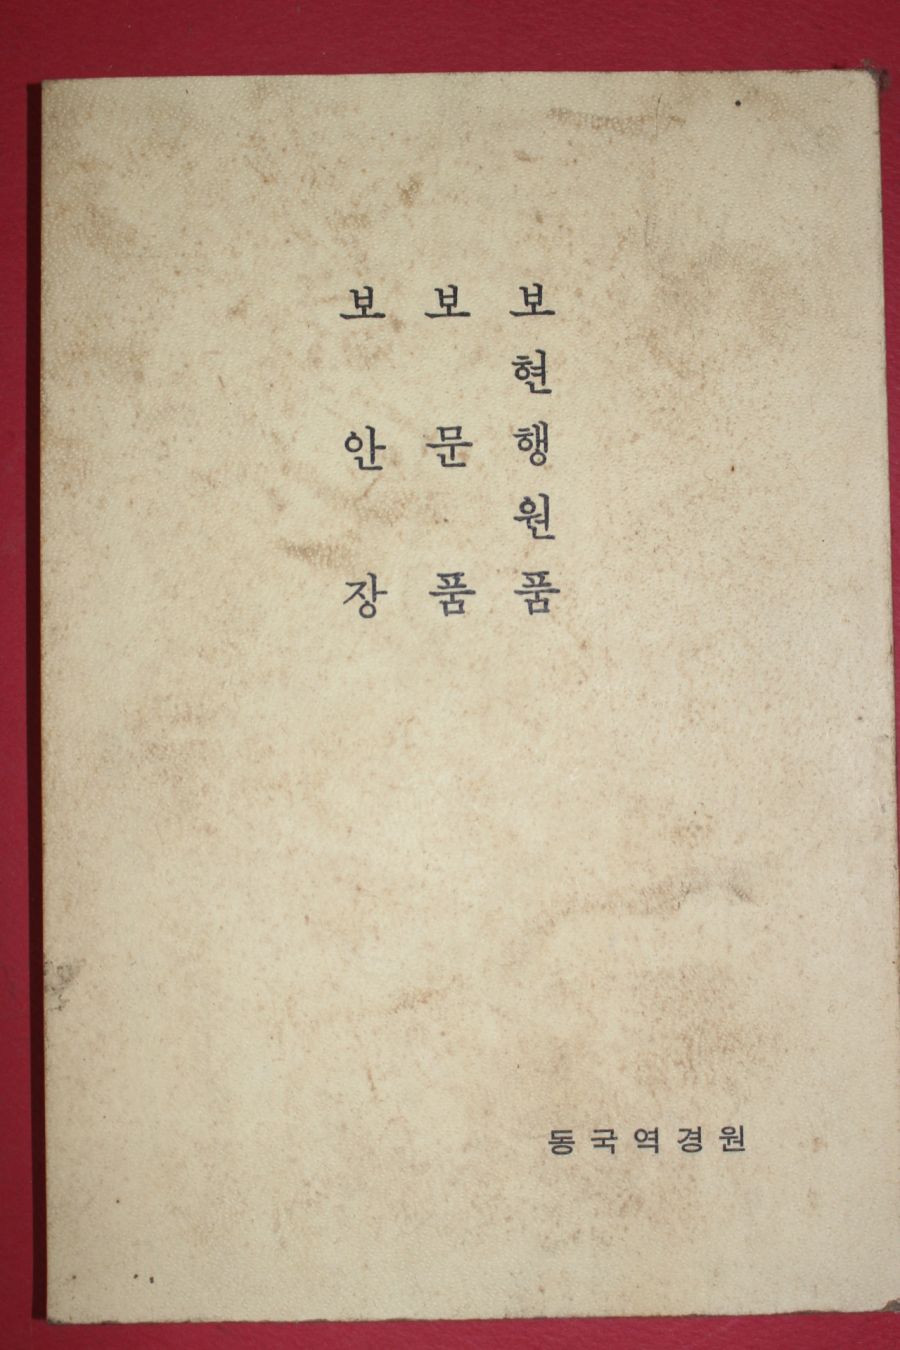 보현행원품
보문품
보안장
동국역경원